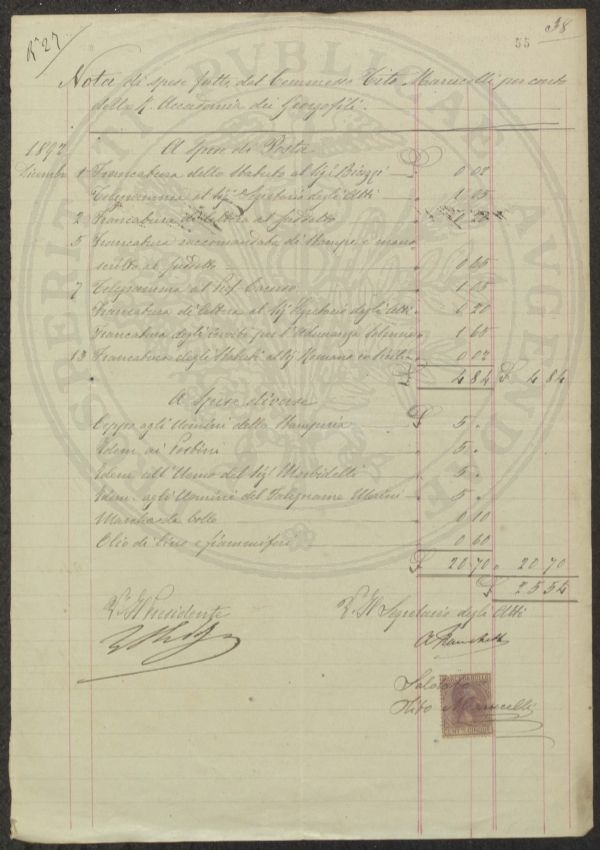 N° 27
55
38
Nota di spese fatte dal Commesso Tito Marucelli per conto
della R. Accademia dei Georgofili.
1892
A Spese di Posta
1 Francatura dello Statuto al Sig. 0 02
Telegramma al Sig. Segretario degli Atti 1 05
2 Francatura di lettera al
5 Francatura raccomandata di Stampe e mano
scritto al 0 65
7 Telegramma al Prof. 1 05
Francatura di lettera al Sig. Segretario degli Atti 0 20
Francatura degli Inviti per l'Adunanza Solenne 1 60
13 Francatura degli Statuti al Sig. Romano 0 02
£ 4 84 £ 4 84
A Spese diverse
Ceppo agli Uomini della Stamperia £ 5 "
Idem ai Postini " 5 "
Idem all'Uomo del Sig. Morbidelli " 5 "
Idem agli Uomini del Falegname Merini " 5 "
Marche da bollo " 0 10
Olio di Lino e fiammiferi " 0 60
£ 20 70 " 20 70
£ 25 54
V. Il Presidente
V. Il Segretario degli Atti
Saldato
Tito Marucelli
CENT. CINQUE
PROSPERITATI PUBLICAE AUGENDAE